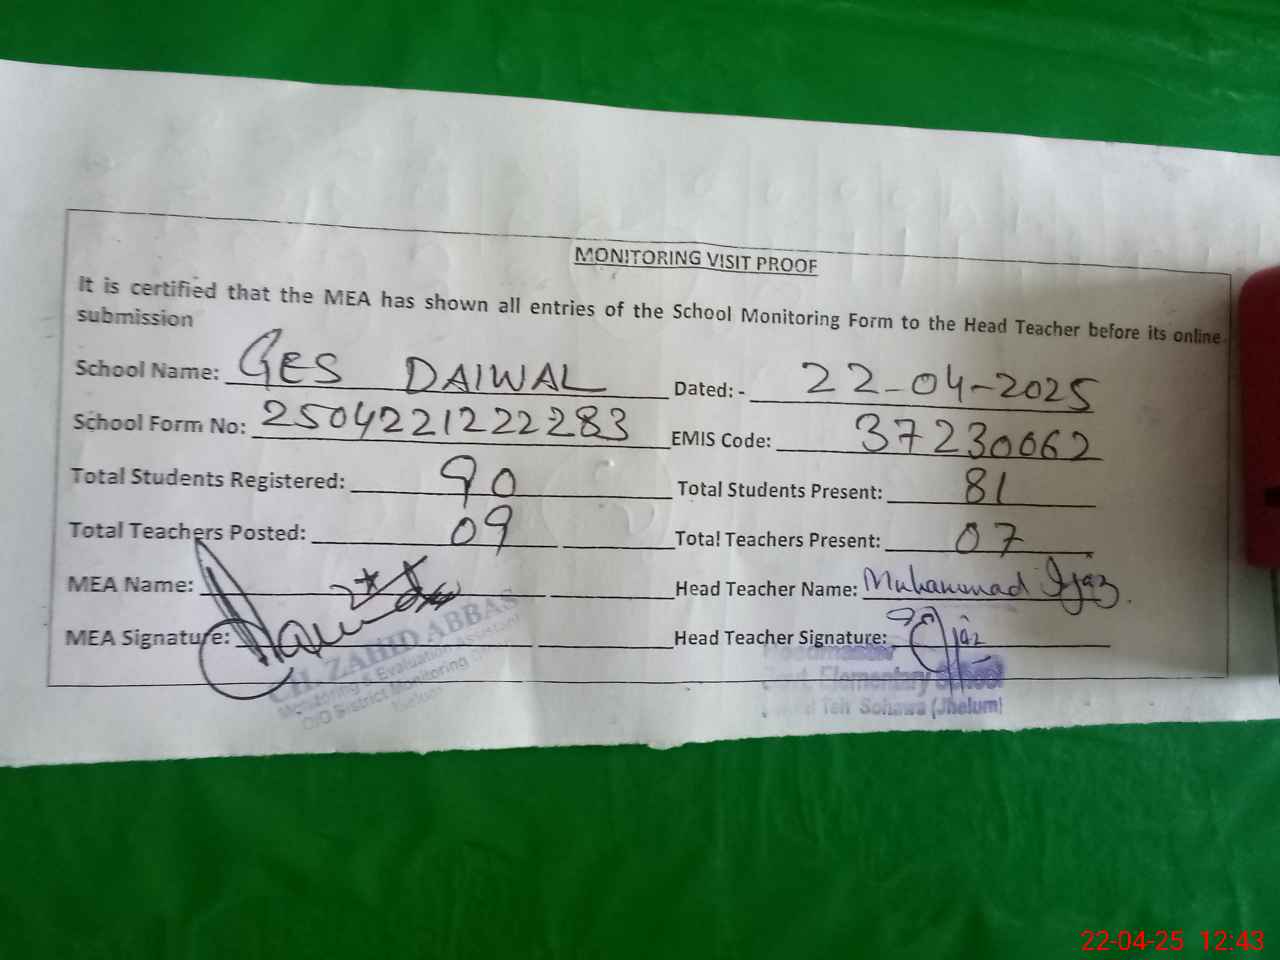 MONITORING VISIT PROOF
It is certified that the MEA has shown all entries of the School Monitoring Form to the Head Teacher before its online
submission
School Name: GES DAIWAL Dated: - 22-04-2025
School Form No: 2504221222283 EMIS Code: 37230062
Total Students Registered: 90 Total Students Present: 81
Total Teachers Posted: 09 Total Teachers Present: 07
MEA Name: Head Teacher Name: Muhammad Ijaz.
MEA Signature: Head Teacher Signature: Ijaz
CH. ZAHID ABBAS
Monitoring & Evaluation Assistant
O/O District Monitoring
Headmaster
Govt. Elementary School
Teh Sohawa (Jhelum)
22-04-25 12:43